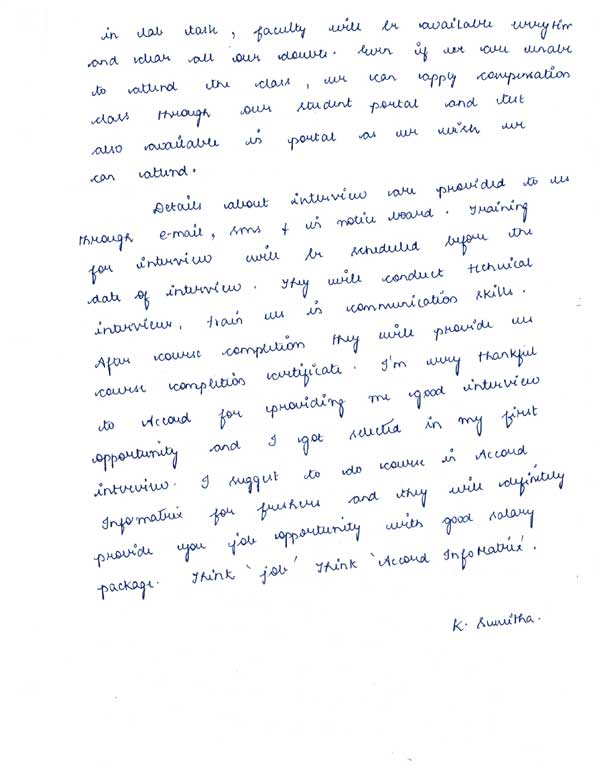 in lab task, faculty will be available everytim
and clear all our doubts. Even if we are unable
to attend the class, we can apply compensation
class through our student portal and test
also available in portal as we wish we
can attend.
Details about interview are provided to us
through e-mail, sms & in notice board. Training
for interview will be scheduled before the
date of interview. They will conduct technical
interview, train us in communication skills.
After course completion they will provide us
course completion certificate. I'm very thankful
to Accord for providing me good interview
opportunity and I got selected in my first
interview. I suggest to do course in Accord
Infomatrix for freshers and they will definitely
provide you job opportunity with good salary
package. Think 'job' Think 'Accord InfoMatrix'.
K. Sumitha.